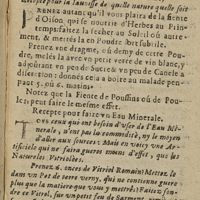 Recepte pour la fausse de quelle nature quelle soit
PRENEZ autant qu'il vous plaira de la fiente
d'Oison, qui se nourrit d'Herbes au Prin-
temps, faitez la secher au Soleil ou autre-
ment, & mettez la en Poudre fort subtile.
Prenez une dragme, & demy de cette Pou-
dre, mettez la dans un petit verre de vin blanc, y
adjoutant un peu de Sucre & un peu de Canele a
discretion: donnez cela a boire au malade pen-
dant 5. ou 6. matins.
Notez que la Fiente de Poussins ou de Pou-
lets peut faire le mesme effet.
Recepte pour faire un Eau Minerale.
TOUS ceux qui ont besoin d'user de l'Eau Mi-
nerale, n'ont pas la commodité, ny le moyen
d'aller aux sources: Mais en voicy une Ar-
tificielle qui ne faira guerre moins d'effet, que les
Naturelles Vitriolées.
Prenez 4. onces de Vitriol Romain: Mettez le
dans un Pot de terre verny, qui ne contienne guere
plus que la matiere que vous y mettrez: Faitez fon-
dre ce Vitriol, sur un petit feu de Sarment,